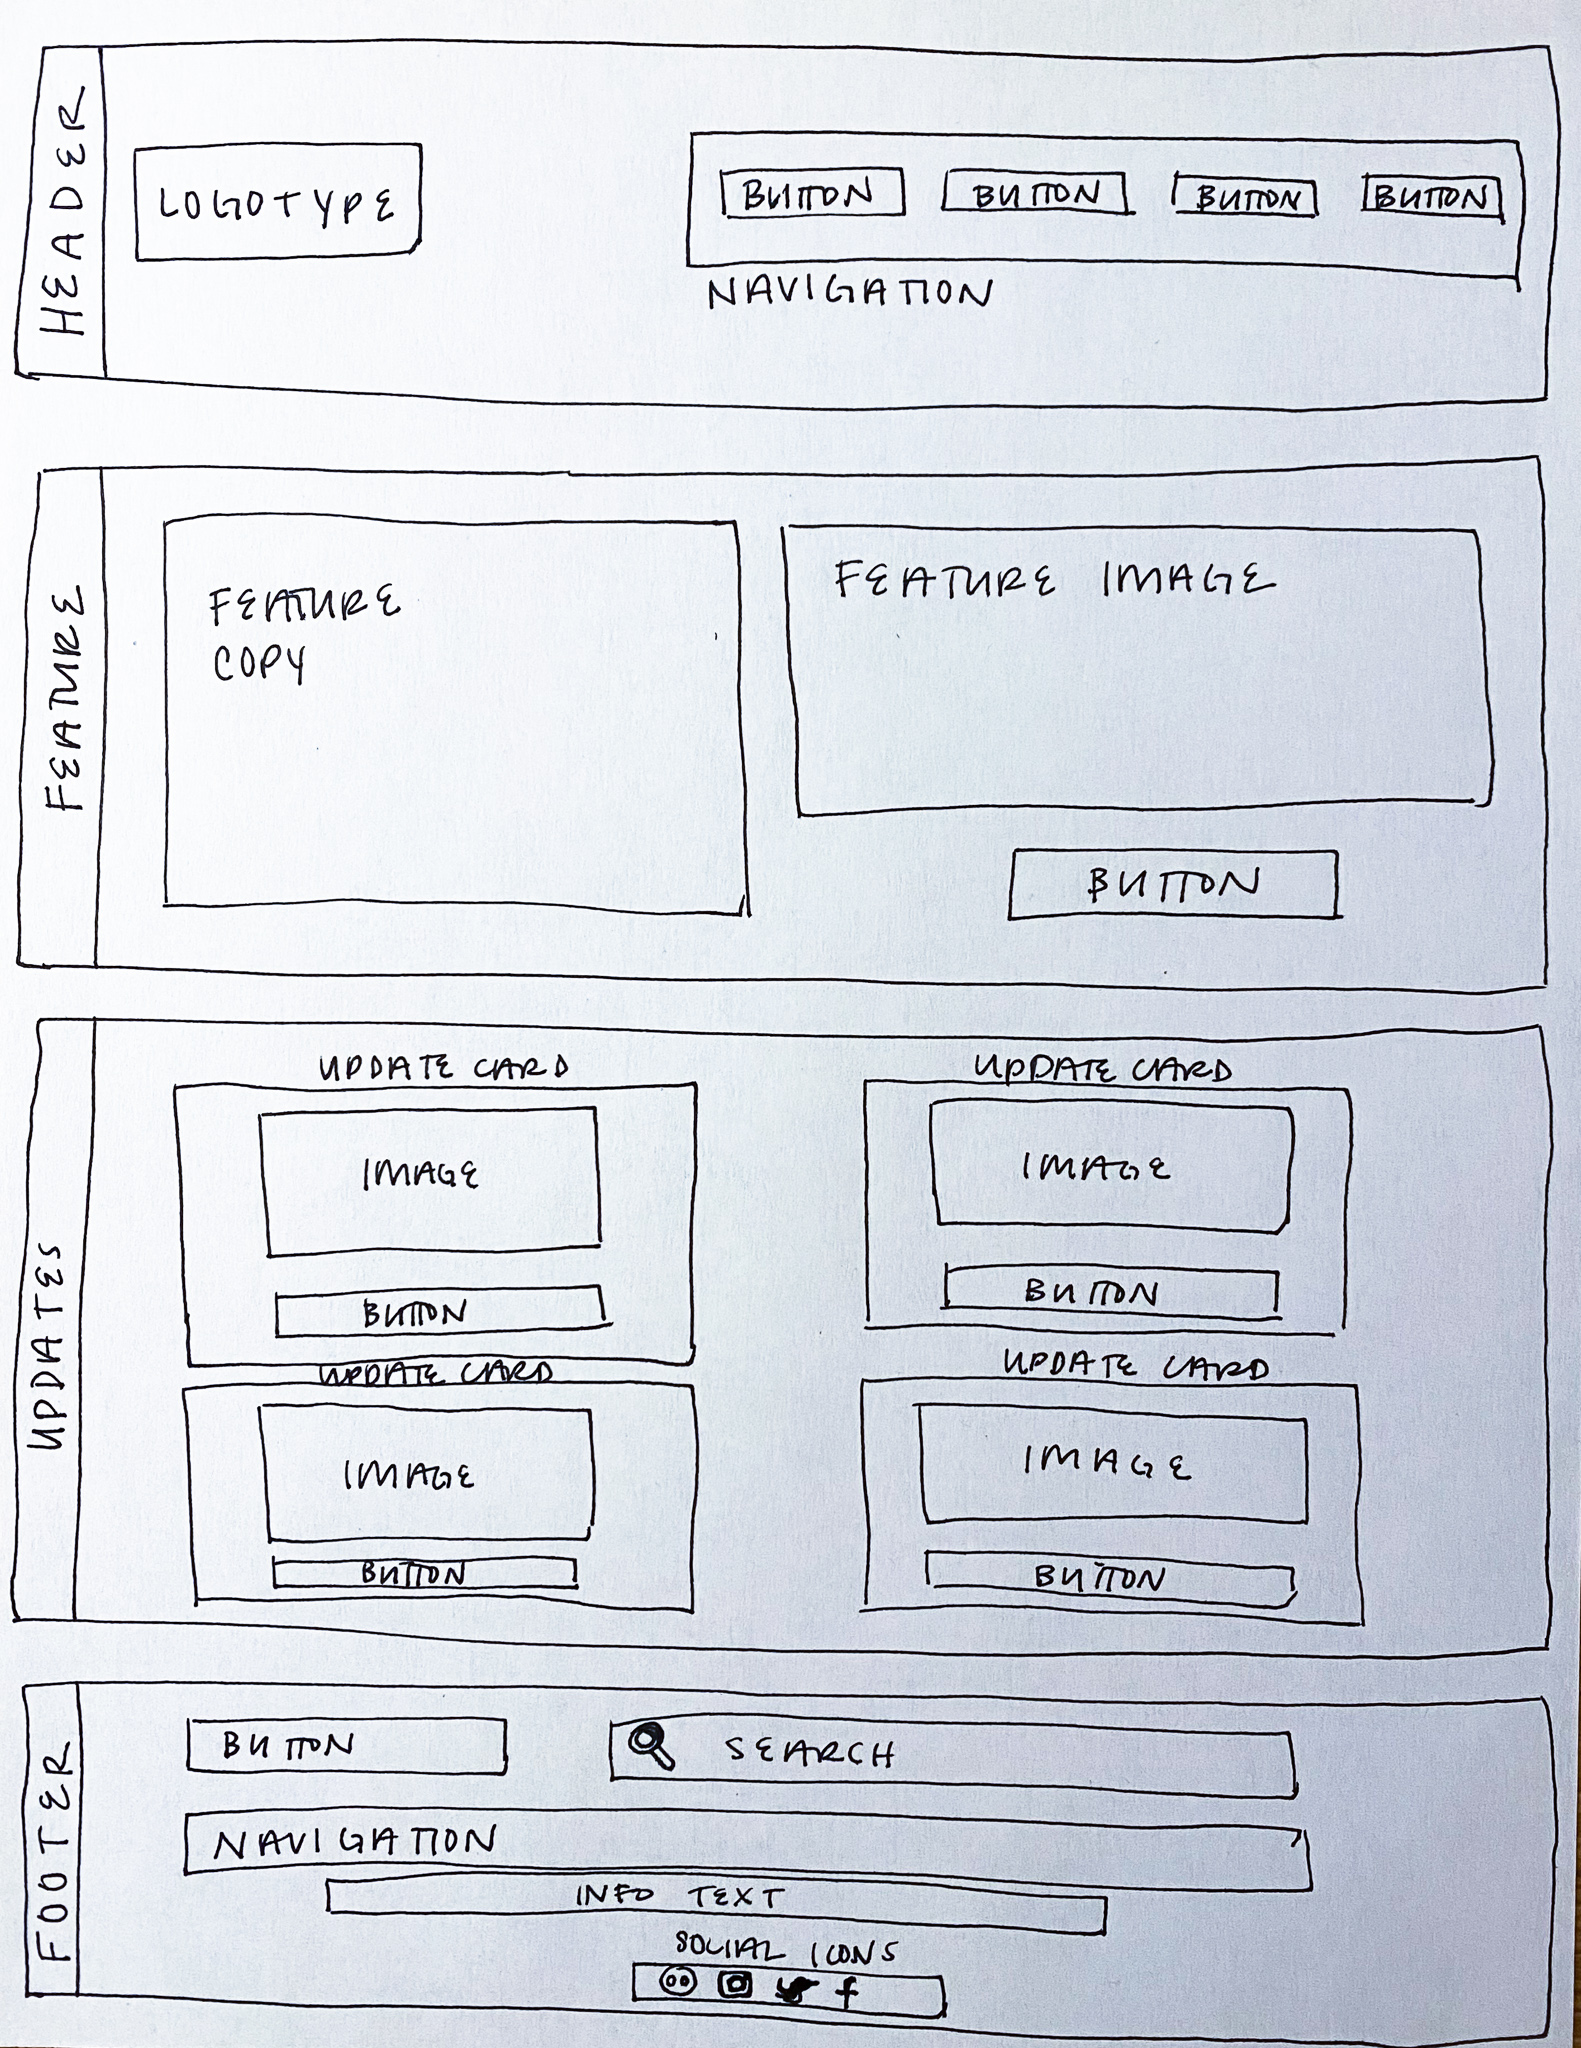 HEADER
LOGOTYPE
BUTTON BUTTON BUTTON BUTTON
NAVIGATION
FEATURE
FEATURE
COPY
FEATURE IMAGE
BUTTON
UPDATES
UPDATE CARD
IMAGE
BUTTON
UPDATE CARD
IMAGE
BUTTON
UPDATE CARD
IMAGE
BUTTON
UPDATE CARD
IMAGE
BUTTON
FOOTER
BUTTON
SEARCH
NAVIGATION
INFO TEXT
SOCIAL ICONS
f